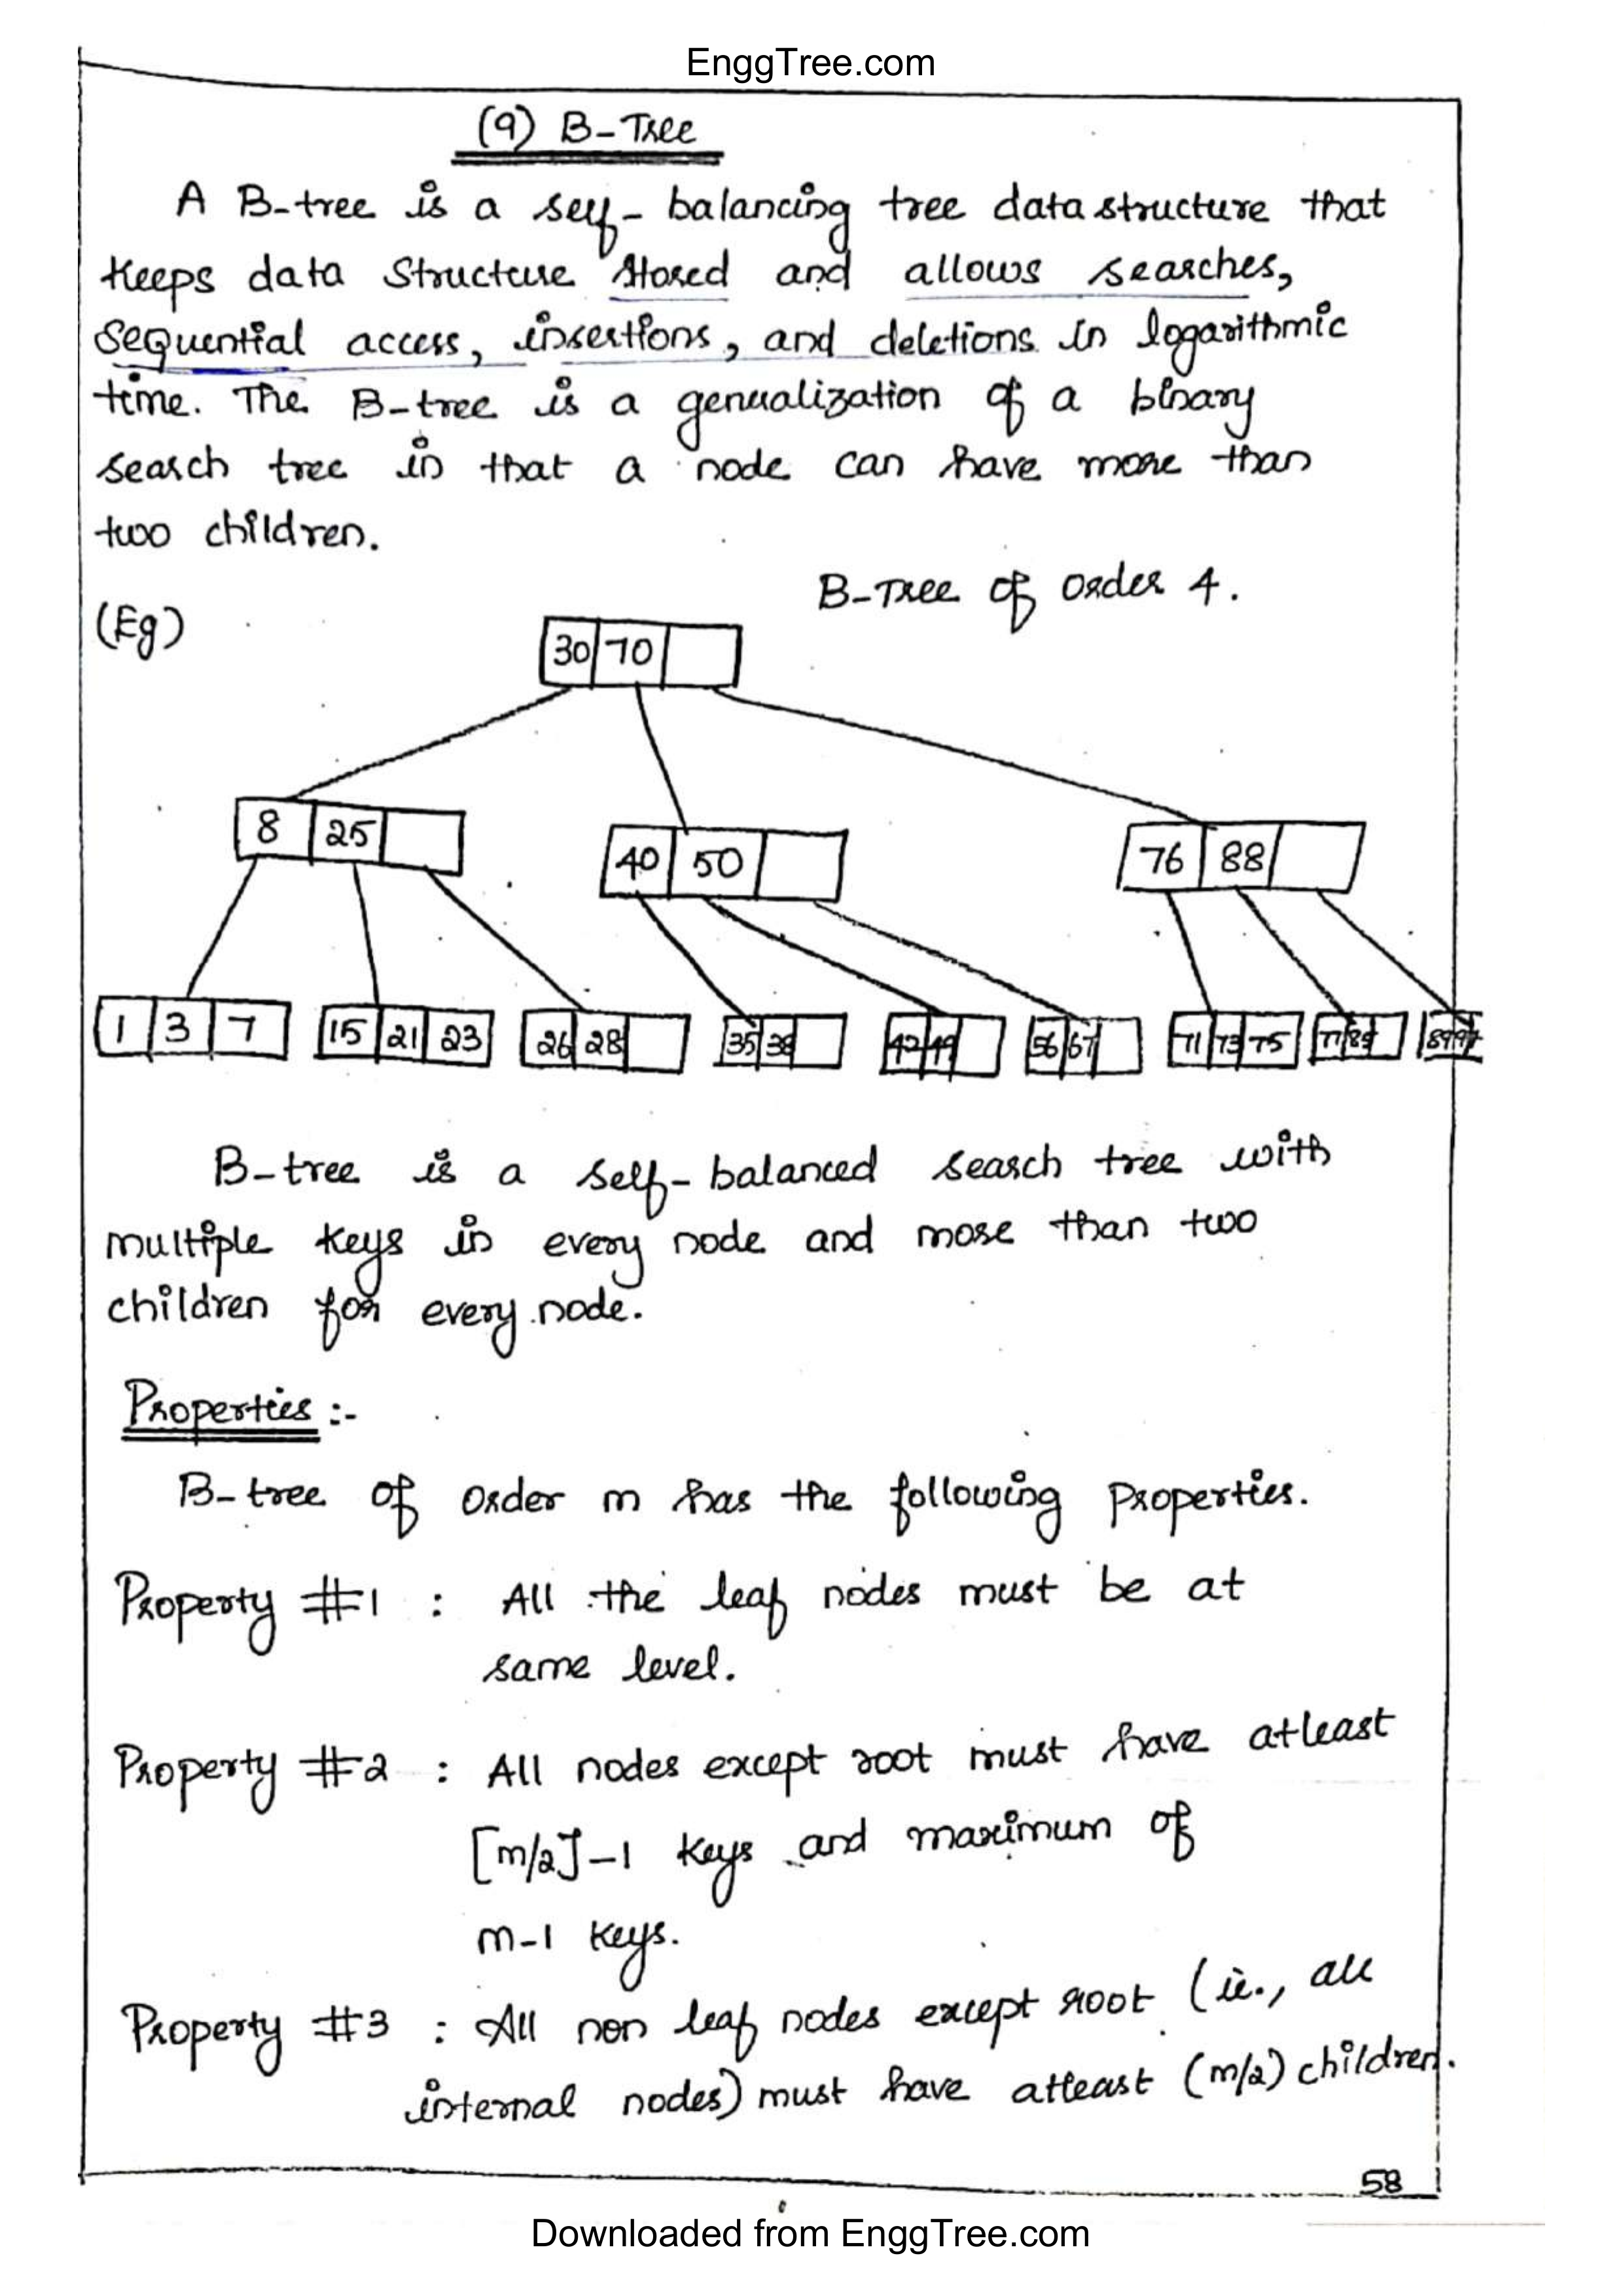 EnggTree.com
(9) B-Tree
A B-tree is a self-balancing tree data structure that
keeps data structure stored and allows searches,
sequential access, insertions, and deletions in logarithmic
time. The B-tree is a generalization of a binary
search tree in that a node can have more than
two children.
B-Tree of order 4.
(Eg)
30 70
8 25
40 50
76 88
1 3 7
15 21 23
26 28
35 38
42 49
56 67
71 73 75
77
89 97
B-tree is a self-balanced search tree with
multiple keys in every node and more than two
children for every node.
Properties :-
B-tree of order m has the following properties.
Property #1 : All the leaf nodes must be at
same level.
Property #2 : All nodes except root must have atleast
[m/2]-1 keys and maximum of
m-1 keys.
Property #3 : All non leaf nodes except root (ie., all
internal nodes) must have atleast (m/2) children.
58
Downloaded from EnggTree.com